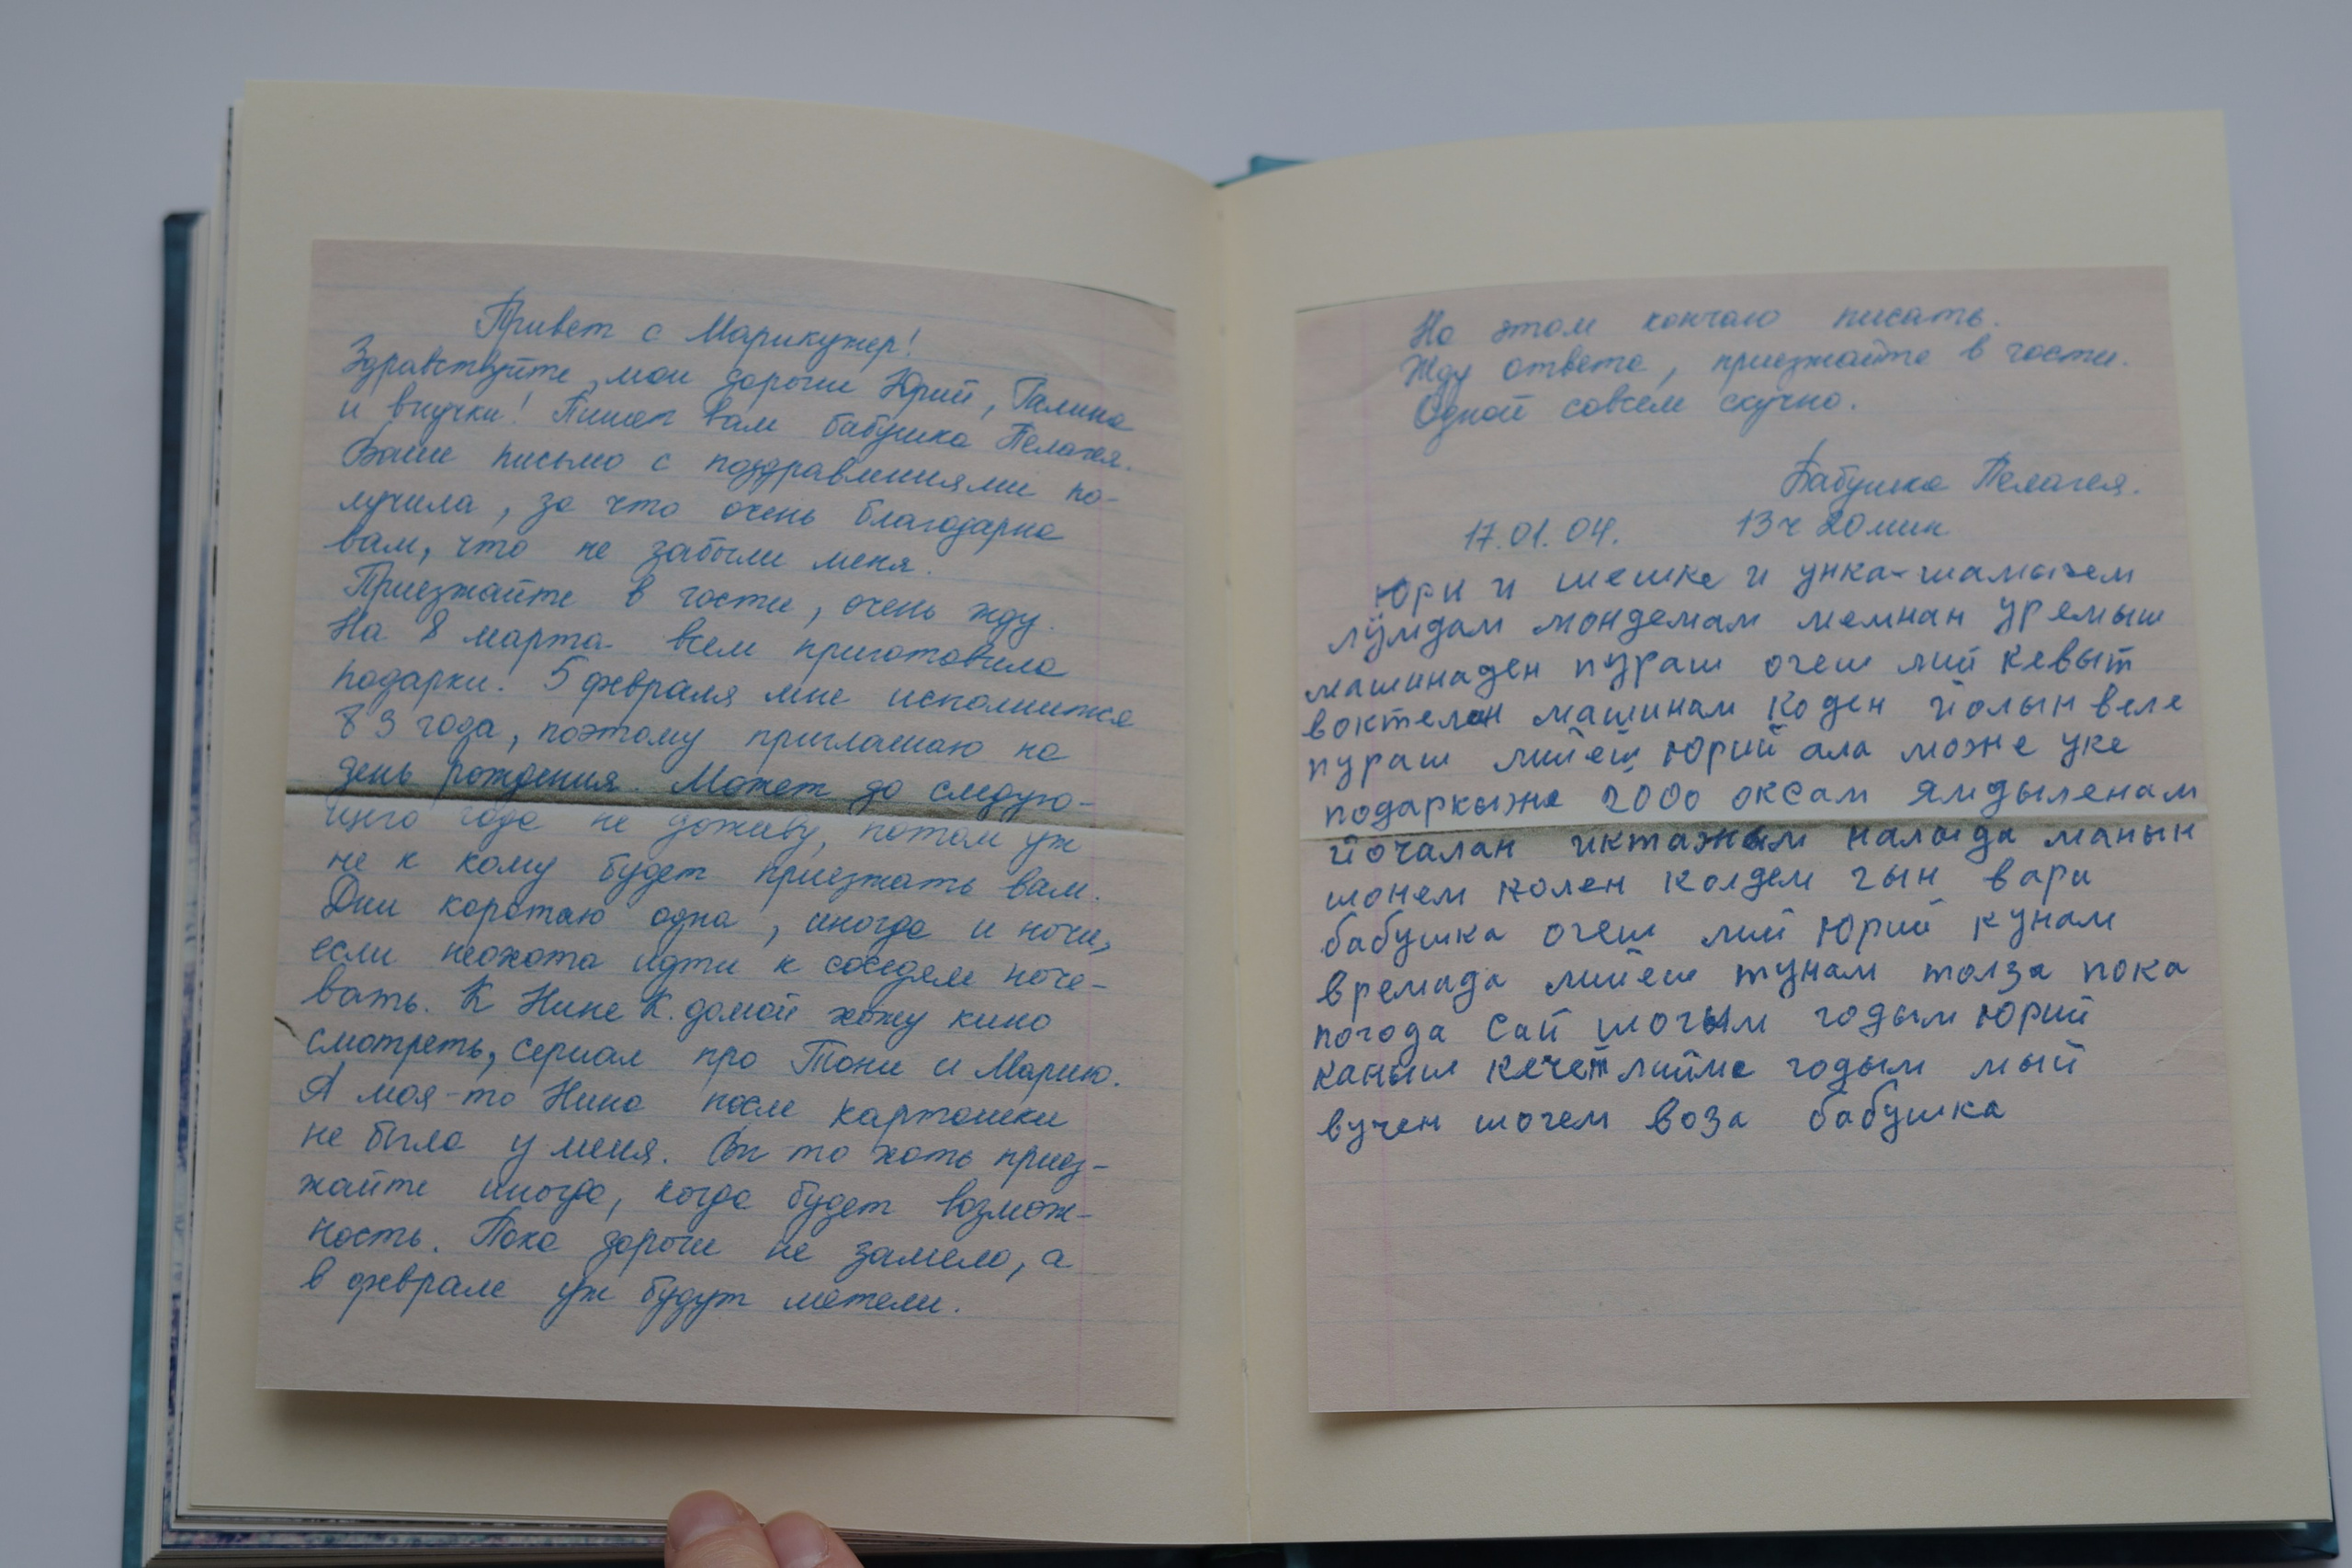 Привет с Марикужер!
Здравствуйте, мои дороги Юрий, Галина
и внучки! Пишет вам бабушка Пелагея.
Ваше письмо с поздравлениями по-
лучила, за что очень благодарна
вам, что не забыли меня.
Приезжайте в гости, очень жду.
На 8 марта всем приготовила
подарки. 5 февраля мне исполнится
83 года, поэтому приглашаю на
день рождения. Может до следую-
щего года не доживу, потом уж
не к кому будет приезжать вам.
Дни коротаю одна, иногда и ночи,
если неохота идти к соседям ноче-
вать. К Нине К. домой хожу кино
смотреть, сериал про Тони и Марию.
А моя-то Нина после картошки
не была у меня. Вы то хоть приез-
жайте иногда, когда будет возмож-
ность. Пока дороги не замело, а
в феврале уж будут метели.
На этом кончаю писать.
Жду ответа, приезжайте в гости.
Одной совсем скучно.
Бабушка Пелагея.
17.01.04. 13ч 20мин
Юри и шешке и унка-шамычем
лӱмдам мондемам мемнан уремыш
машинаден пураш огеш лий кевыт
воктелан машинам коден йолын веле
пураш лийеш Юрий ала може уке
подаркыже 2000 оксам ямдыленам
йочалан иктажым налыда манын
шонем колен колдем гын вара
бабушка огеш лий Юрий кунам
времада лийеш тунам толза пока
погода сай шогым годым Юрий
каныш кечет лийме годым мый
вучен шогем воза бабушка